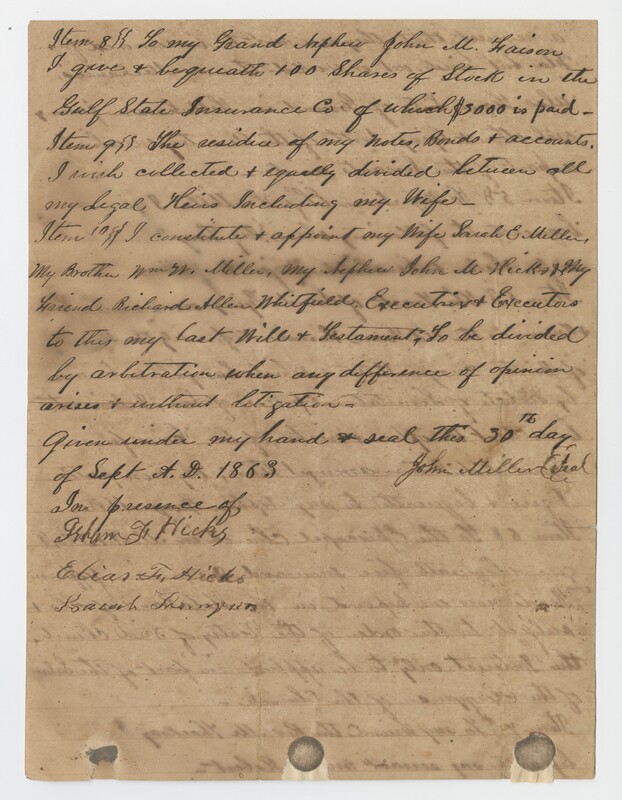 Item 8th To my Grand Nephew John M. Faison
I give & bequeath 100 Shares of Stock in the
Gulf State Insurance Co of which $3000 is paid -
Item 9th The residue of my Notes, Bonds & accounts.
I wish collected & equally divided between all
my Legal Heirs Including my Wife -
Item 10th I constitute & appoint my Wife Sarah E. Miller,
My Brother Wm W. Miller, my Nephew John M. Hicks & My
Friend Richard Allen Whitfield, Executrix & Executors
to this my last Will & Testament; To be divided
by arbitration when any difference of opinion
arises & without litigation -
Given under my hand & seal this 30th day
of Sept A.D. 1863 John Miller Seal
In presence of
Hicks
Elias F. Hicks
Isaiah Thompson